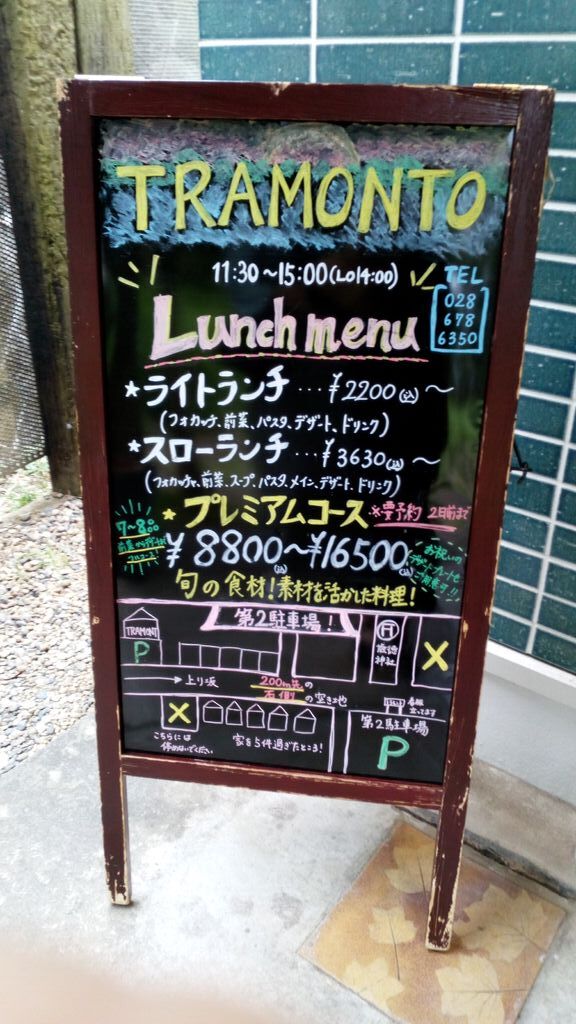 TRAMONTO
11:30～15:00(LO14:00)
TEL
028
678
6350
Lunch menu
★ライトランチ…¥2200(込)～
(フォカッチャ、前菜、パスタ、デザート、ドリンク)
★スローランチ…¥3630(込)～
(フォカッチャ、前菜、スープ、パスタ、メイン、デザート、ドリンク)
7～8品
★プレミアムコース ※要予約 2日前まで
¥8800(込)～¥16500(込)
お祝いの
デザートプレートも
ご用意可!!
旬の食材!素材を活かした料理!
第2駐車場!
TRAMONT
P
神社
X
→上り坂
200m先の
右側の空き地
看板
立ってます
X
第2駐車場
P
こちらには
停めないでください
家を5件過ぎたところ!